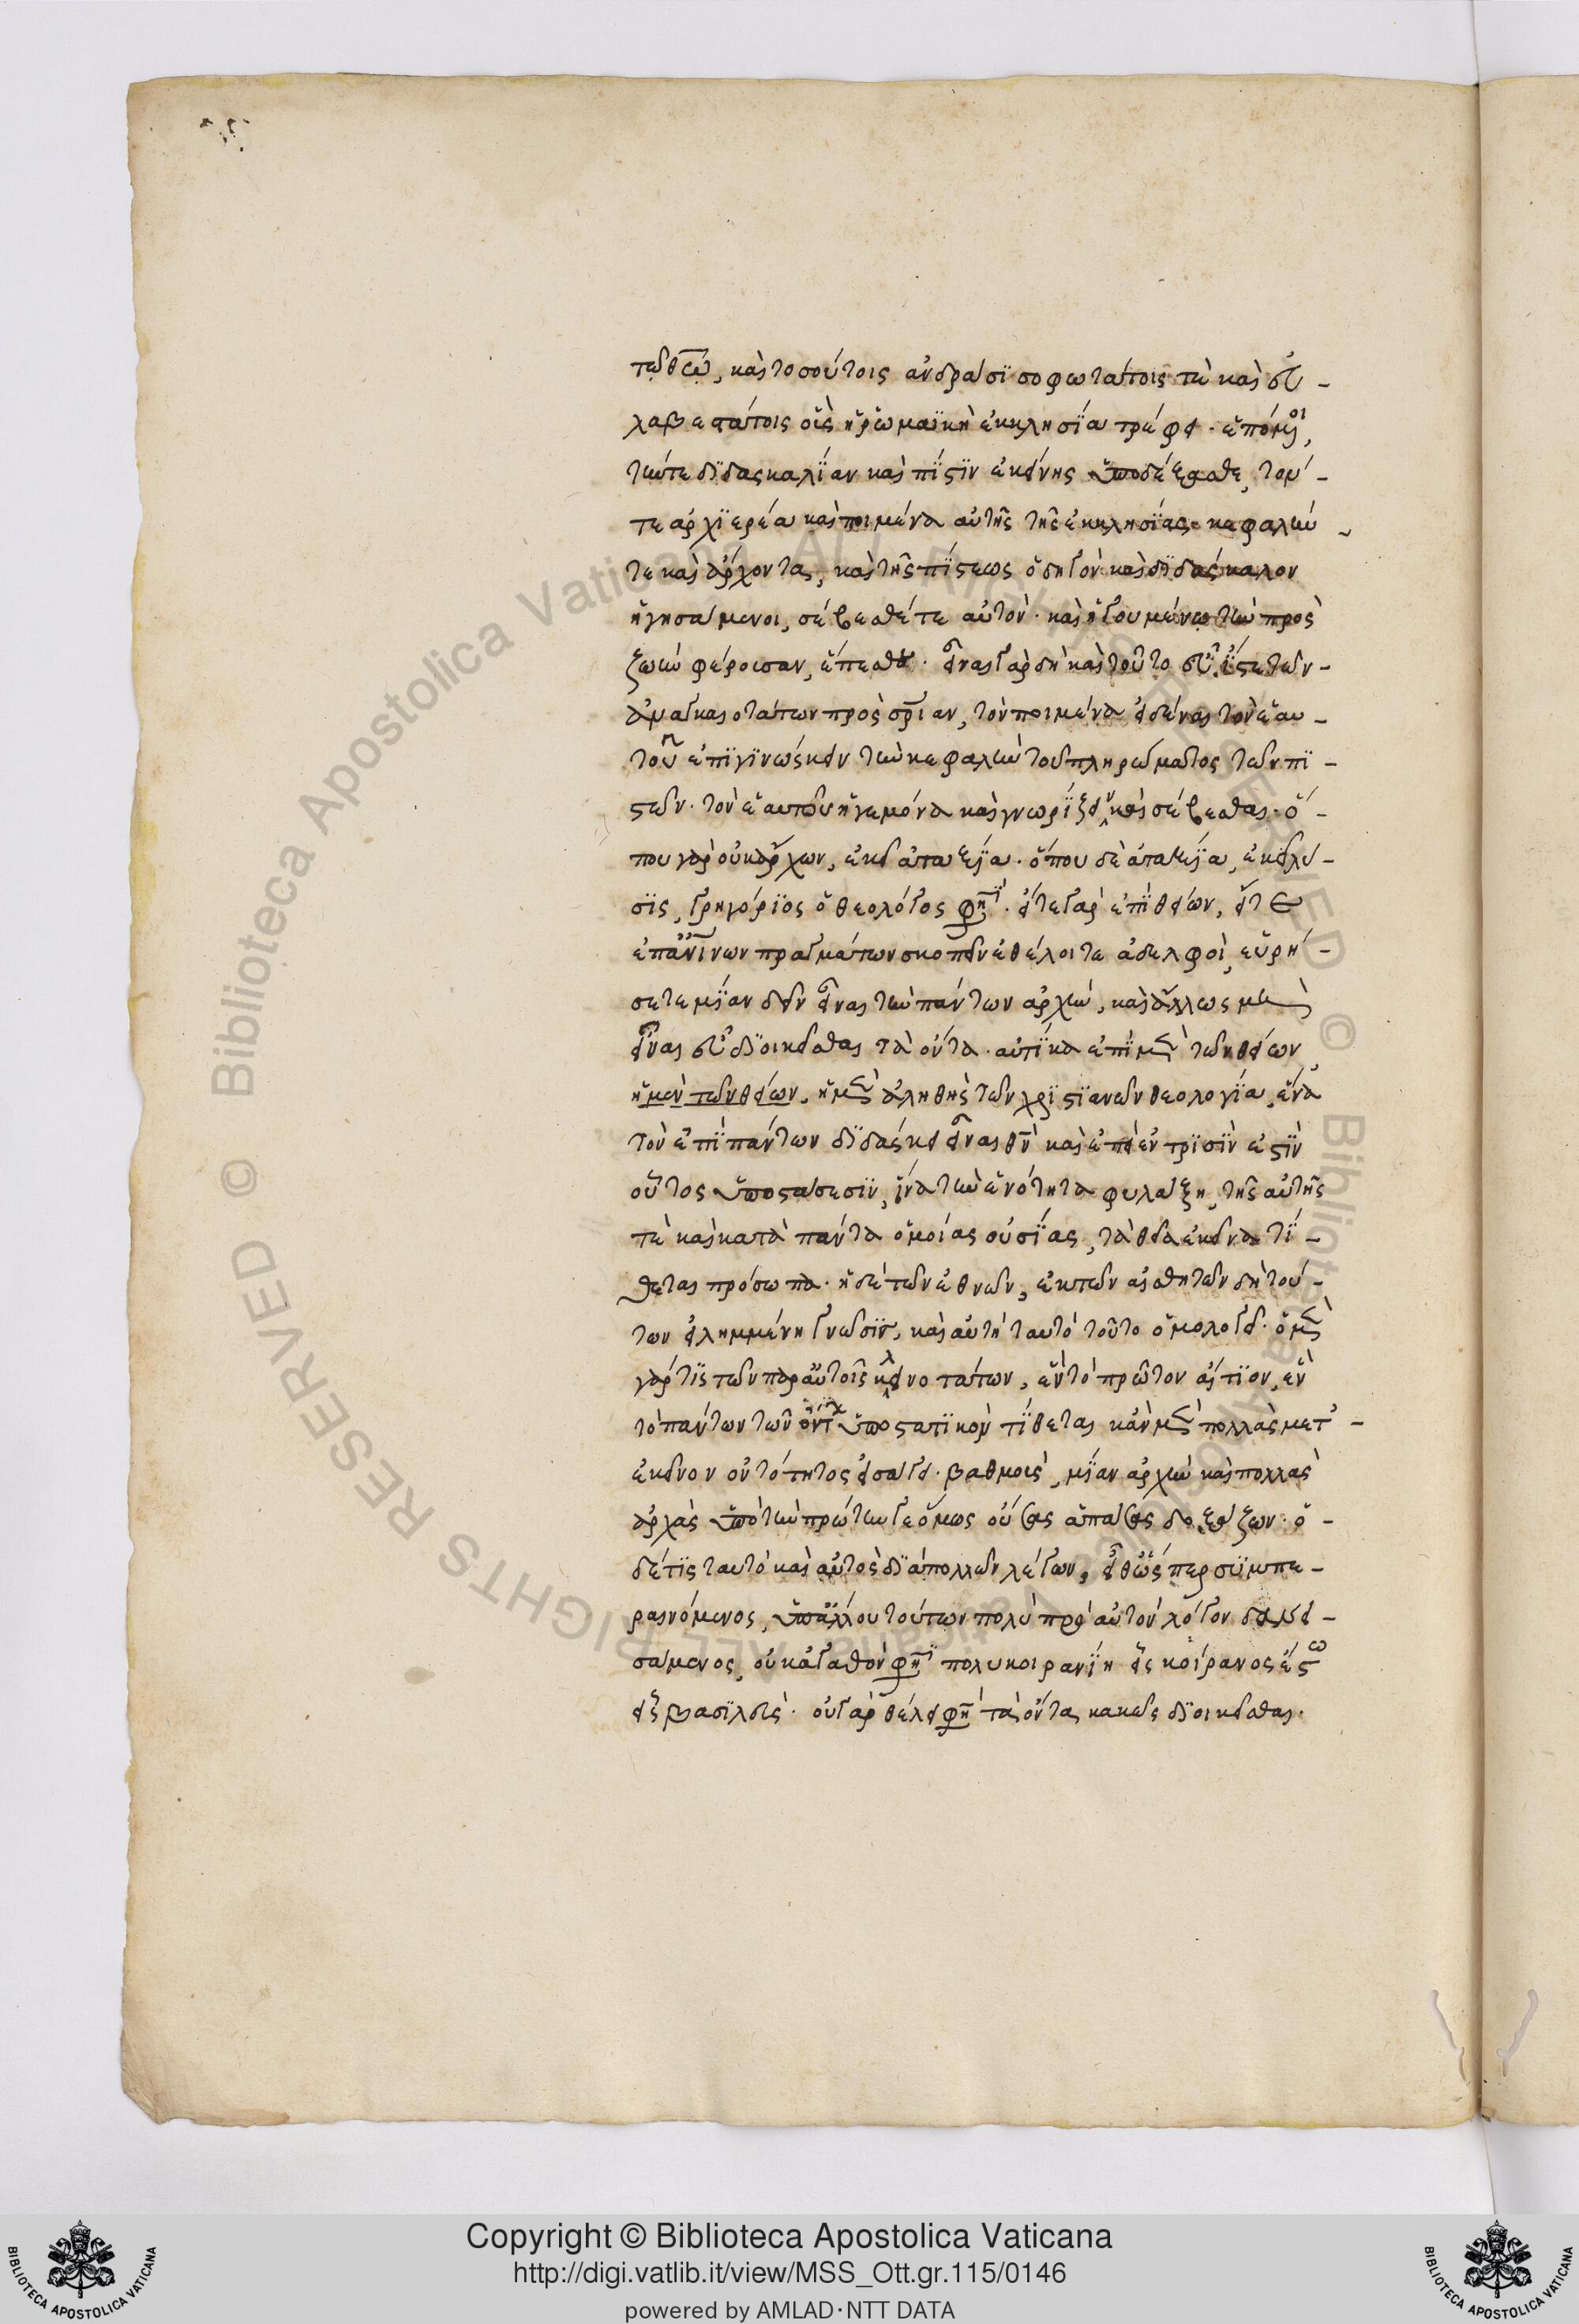 τῷ θεῷ, καὶ τοσούτοις ἀνδράσι σοφωτάτοις τὲ καὶ εὐ-
λαβεστάτοις οἷς ἡ ῥωμαϊκὴ ἐκκλησία τρέφει. ἑπόμενοι,
τήν τε διδασκαλίαν καὶ πίστιν ἐκείνης ὑποδέξασθε, τόν-
τε ἀρχιερέα καὶ ποιμένα αὐτῆς τῆς ἐκκλησίας κεφαλήν
τε καὶ ἄρχοντα, καὶ τῆς πίστεως ὁδηγὸν καὶ διδάσκαλον
ἡγησάμενοι, σέβεσθέ τε αὐτόν. καὶ ἡγουμένῳ τὴν πρὸς
ζωὴν φέρουσαν, ἕπεσθε. εἶναι γὰρ δὴ καὶ τοῦτο εὖ ἴστε τῶν
ἀναγκαιοτάτων πρὸς σωτηρίαν, τὸν ποιμένα εἰδέναι τὸν ἑαυ-
τοῦ ἐπιγινώσκειν τὴν κεφαλὴν τοῦ πληρώματος τῶν πι-
στῶν. τὸν ἑαυτῶν ἡγεμόνα καὶ γνωρίζειν καὶ σέβεσθαι. ὅ-
που γὰρ οὐκ ἄρχων, ἐκεῖ ἀταξία. ὅπου δὲ ἀταξία, ἐκεῖ λύ-
σις, γρηγόριος ὁ θεολόγος φησί. εἴτε γὰρ ἐπὶ θείων, εἴτε
ἐπ' ἀνθρωπίνων πραγμάτων σκοπεῖν ἐθέλοιτε ἀδελφοὶ, εὑρή-
σετε μίαν δεῖν εἶναι τὴν πάντων ἀρχὴν, καὶ ἄλλως μὴ
εἶναι εὖ διοικεῖσθαι τὰ ὄντα. αὐτίκα ἐπὶ μὲν τῶν θείων
ἡ μὲν τῶν θείων, ἡ μὲν ἀληθὴς τῶν χριστιανῶν θεολογία, ἕνα
τὸν ἐπὶ πάντων διδάσκει εἶναι θεὸν καὶ ἐπεὶ ἐν τρισὶν ἐστὶν
οὗτος ὑποστάσεσιν, ἵνα τὴν ἑνότητα φυλάξῃ, τῆς αὐτῆς
τὲ καὶ κατὰ πάντα ὁμοίας οὐσίας, τὰ θεῖα ἐκεῖνα τί-
θεται πρόσωπα. ἡ δὲ τῶν ἐθνῶν, ἐκ τῶν αἰσθητῶν δὴ τού-
των εἰλημμένη γνῶσις, καὶ αὐτὴ ταυτὸ τοῦτο ὁμολογεῖ. ὁ μὲν
γάρ τις τῶν παρ' αὐτοῖς κλεινοτάτων, ἓν τὸ πρῶτον αἴτιον, ἓν
τὸ πάντων τῶν ὄντων ὑποστατικὸν τίθεται κἂν μὲν πολλὰς μετ'
ἐκεῖνον ὀντότητος εἰσάγει βαθμοὺς, μίαν ἀρχὴν καὶ πολλὰς
ἀρχὰς ὑπὸ τὴν πρώτην γε ὅμως οὔσας ἁπάσας δοξάζων. ὁ
δέ τις ταυτὸ καὶ αὐτὸς διὰ πολλῶν λέγων, εἶθ' ὥσπερ συμπε-
ραινόμενος, ὑπ' ἄλλου τούτων πολὺ πρὸ αὐτοῦ λόγον δανει-
σάμενος, οὐκ ἀγαθόν φησι πολυκοιρανίη εἷς κοίρανος ἔστω
εἷς βασιλεύς. οὐ γὰρ θέλει φησὶ τὰ ὄντα κακῶς διοικεῖσθαι.
Copyright © Biblioteca Apostolica Vaticana
http://digi.vatlib.it/view/MSS_Ott.gr.115/0146
powered by AMLAD·NTT DATA